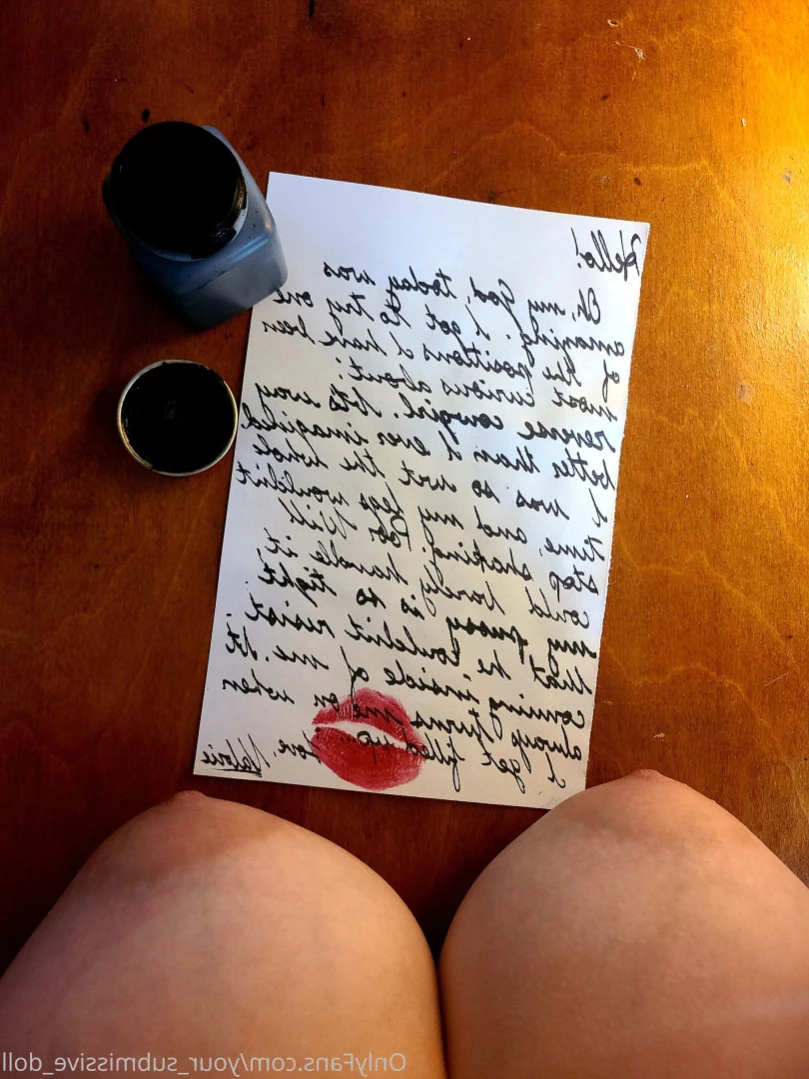 Hello!
Oh, my God, today was
amazing. I got to try one
of the positions I have been
most curious about:
reverse cowgirl. It's way
better than I ever imagined.
I was so wet the whole
time, and my legs wouldn't
stop shaking. Poor Will
could barely handle it,
my pussy is so tight
that he couldn't resist
coming inside of me. It
always turns me on when
I get filled up... Love, Valerie
OnlyFans.com/your_submissive_doll